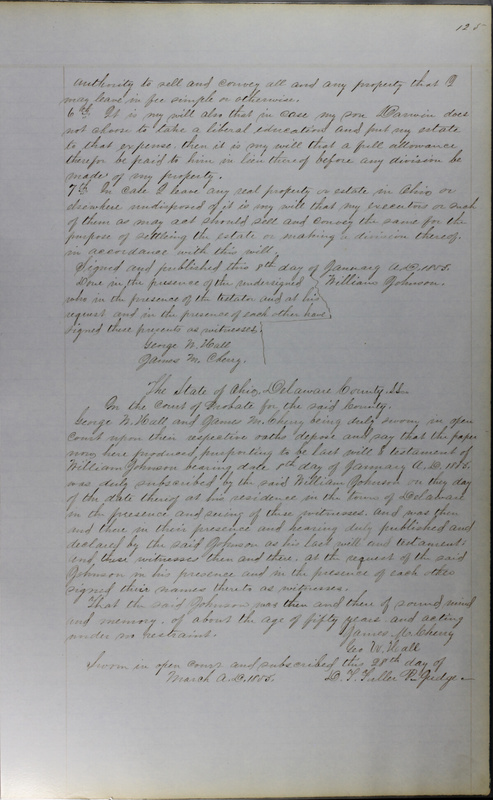 125
authority to sell and convey all and any property that I
may leave in fee simple or otherwise.
6th. It is my will also that in case my son Darwin does
not choose to take a liberal education and put my estate
to that expense then it is my will that a full allowance
therefor be paid to him in lieu thereof before any division be
made of my property.
7th. In case I leave any real property or estate in Ohio or
elsewhere undisposed of it is my will that my executors or such
of them as may act should sell and convey the same for the
purpose of settling the estate or making a division thereof
in accordance with this will.
Signed and published this 8th day of January A.D. 1855.
Done in the presence of the undersigned } William Johnson.
who in the presence of the testator and at his
request and in the presence of each other have
signed these presents as witnesses.
George W. Hall
James M. Cherry.
The State of Ohio, Delaware County, SS.
In the Court of Probate for the said County.
George W. Hall and James M. Cherry being duly sworn in open
court upon their respective oaths depose and say that the paper
now here produced, purporting to be last will & testament of
William Johnson bearing date 8th day of January A.D. 1855.
was duly subscribed by the said William Johnson on they day
of the date thereof at his residence in the town of Delaware
in the presence and seeing of these witnesses. and was then
and there in their presence and hearing duly published and
declared by the said Johnson as his last will and testament
and these witnesses then and there, at the request of the said
Johnson in his presence and in the presence of each other
signed their names thereto as witnesses.
That the said Johnson was then and there of sound mind
and memory, of about the age of fifty years and acting
under no restraint.
James M. Cherry
Geo W. Hall
Sworn in open court and subscribed this 28th day of
March A.D. 1855.
D. T. Fuller P. Judge